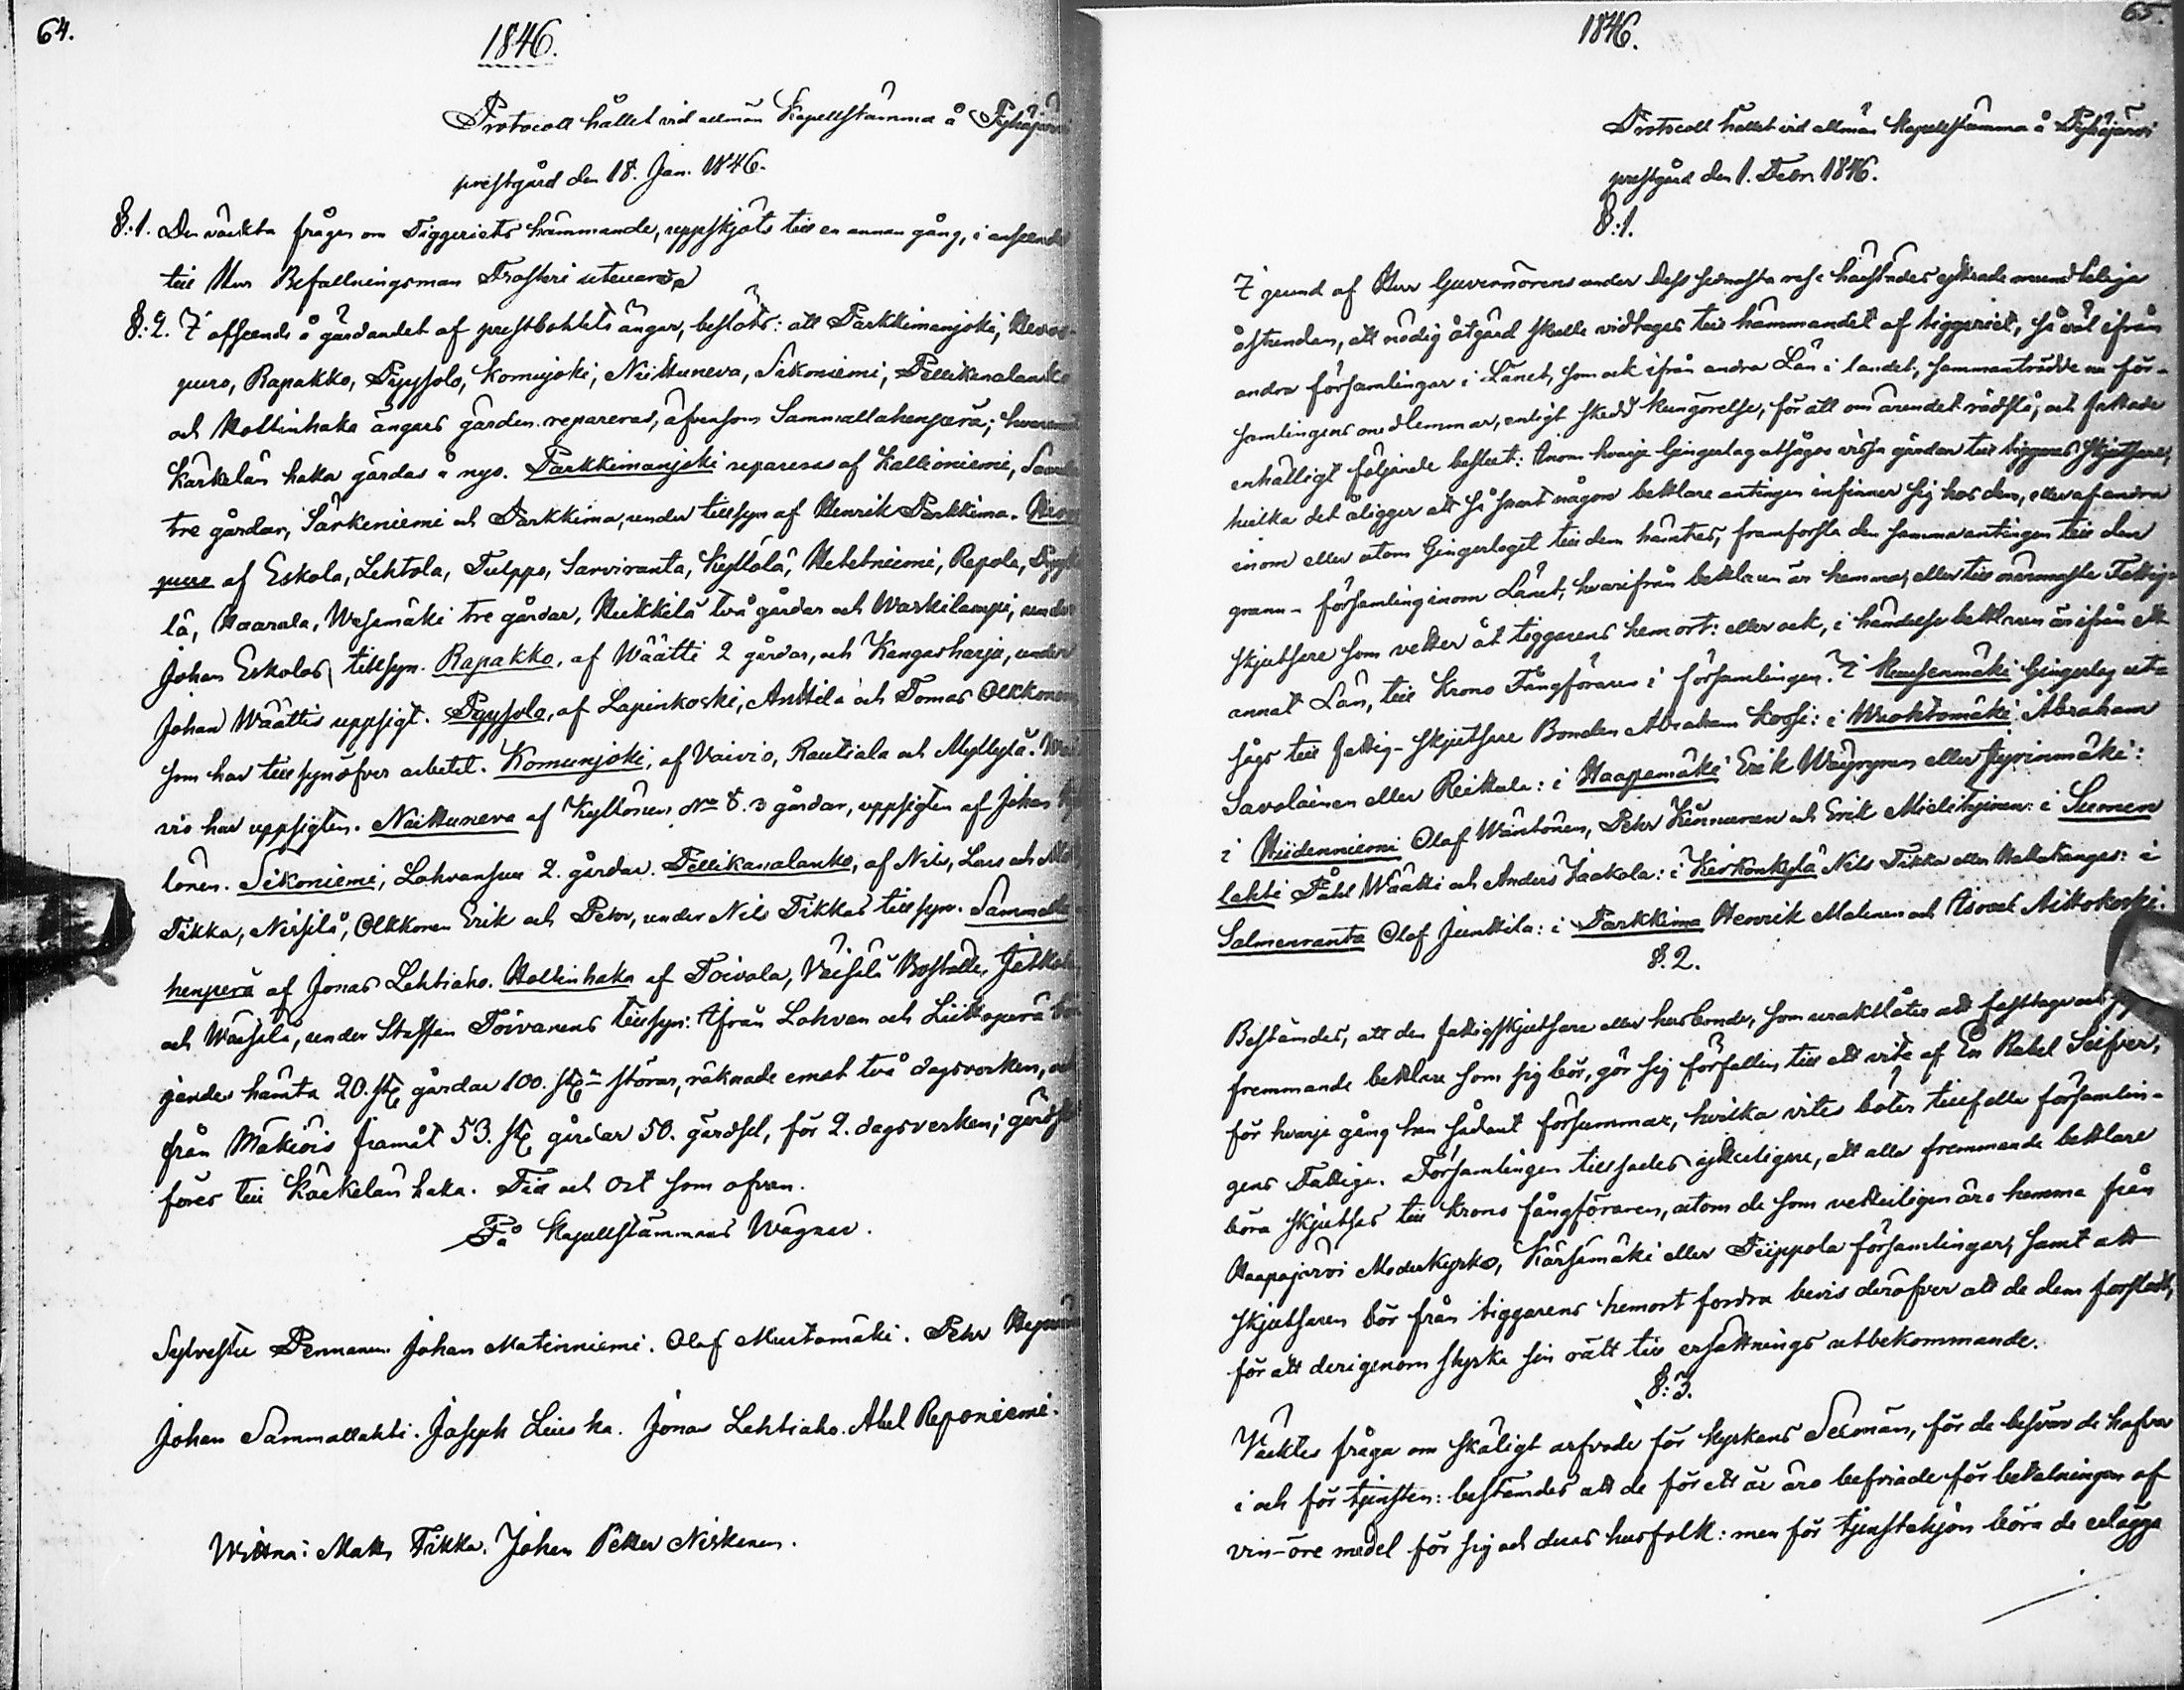 64.
1846.
Protocoll hållet vid allmän Kapellstämma å Pyhäjärvi
prestgård den 18. Jan. 1846.
§:1. Den väckta frågan om Tiggeriets hämmande, uppskjöts till en annan gång, i anseende
till Herr Befallningsman Frosteri uteurande
§:2. I afseende å gärdandet af prestbohlets ängar, beslöts: att Parkkimanjoki,
puro, Rapakko, Pyysalo, Komujoki, Niittuneva, Sikoniemi, Pellikanalanko
och Hollinhaka ängars gärden repareras, äfvensom Sammallahenperä;
Karkelan haka gärdas å nyo. Parkkimanjoki repareras af Kallioniemi,
tre gårdar, Särkeniemi och Parkkima, under tillsyn af Henrik Parkkima.
puro af Eskola, Lehtola, Tulppo, Sarviranta, Kyllölä, Hetetniemi, Repola,
lä, Haarala, Vesimäki tre gårdar, Heikkilä två gårdar och Vaskilampi, under
Johan Eskolas tillsyn. Rapakko, af Väätti 2 gårdar, och Kangasharju, under
Johan Väättis uppsigt. Pyysalo, af Lapinkoski, Anttila och Tomas Olkkonen
som har tillsyn öfver arbetet. Komunjoki, af Vaivio, Rautiala och Myllylä.
vio har uppsigten. Niittuneva af Kyllönen No 8. 3 gårdar, uppsigten af Johan
lönen. Sikoniemi, Lohvansuu 2. gårdar. Pellikanalanko, af Nils, Lars och
Tikka, Nissilä, Olkkonen Erik och Petr, under Nils Tikkas tillsyn. Sammalla
henperä af Jonas Lehtiaho. Hollinhaka af Toivola, Veisilä Boställe,
och Vaisilä, under Staffan Toivanens tillsyn: Ifrån Lohvan och Liittoperä
jande hämta 20. st. gårdar 100. st. störar, räknade emot två dagsverken, och
från Mäkiöis framåt 53. st. gårdar 50. gärdsel, för 2. dagsverken; gärdsel
föres till Karkelan haka. Tid och Ort som ofvan.
På Kapellstämmans Vägnar.
Sylvester Pennanen. Johan Matinniemi. Olof Mustamäki. Petr
Johan Sammallahti. Joseph Leiska. Jonas Lehtiaho. Abel Reponiemi.
Vittna: Matts Tikka. Johan Petter Niskanen.
65.
1846.
Protocoll hållet vid allmän Kapellstämma å Pyhäjärvi
prestgård den 1. Febr. 1846.
§:1.
I grund af Herr Guvernörens under dess sednaste resa härstädes yttrade omundteliga
åstundan, att nödig åtgärd skulle vidtagas till hämmandet af tiggeriet, så väl ifrån
andra församlingar i Länet, som ock ifrån andra Län i landet, sammanträdde nu för-
samlingens medlemmar, enligt skedd kungörelse, för att om ärendet rådslå, och fattade
enhälligt följande beslut: Inom hvarje Gingerlag utsågos vissa gårdar till tiggares skjutsare,
hvilka det åligger att så snart någon betlare antingen infinner sig hos dem, eller af andra
inom eller utom Gingerlaget till dem hämtas, framforsla den samma antingen till den
grann-församling inom Länet, hvarifrån betlaren är hemma, eller till närmaste Fattig-
skjutsare som vetter åt tiggarens hemort: eller ock, i händelse betlaren är ifrån ett
annat Län, till Krono Fångföraren i församlingen. I Hausenmäki Gingerlag ut-
sågs till fattig-skjutsare Bonden Abraham Koosi: i Vuohtomäki Abraham
Savolainen eller Reittula: i Haapamäki Erik Väyrynen eller Pyrinmäki:
i Hiidenniemi Olof Väntönen, Petr Kinnunen och Erik Mielikäinen: i Suomen
lahti Påhl Väätti och Anders Jaakola: i Kirkonkylä Nils Tikka eller Hallakangas: i
Salmenranta Olof Junttila: i Parkkima Henrik Malinen och Aittokoski.
§.2.
Bestämdes, att den fattigskjutsare eller husbonde, som uraktlåter att fasttaga och
fremmande betlare som sig bör, gör sig förfallen till ett vite af En Rubel Silfver,
för hvarje gång han sådant försummar, hvilka vites böter tillfalla församlin-
gens Fattiga. Församlingen tillsades ytterligare, att alla fremmande betlare
böra skjutsas till Krono fångföraren, utom de som vetterligen äro hemma från
Haapajärvi Moderkyrko, Kärsämäki eller Piippola församlingar, samt att
skjutsaren bör från tiggarens hemort fordra bevis deröfver att de dem forslat,
för att derigenom styrka sin rätt till ersättnings utbekommande.
§:3.
Väcktes fråga om skäligt arfvode för Kyrkans Sexmän, för de besvär de hafva
i och för tjensten: bestämdes att de för ett år äro befriade för betalningen af
vin-öre medel för sig och deras husfolk: men för tjenstehjon böra de erlägga